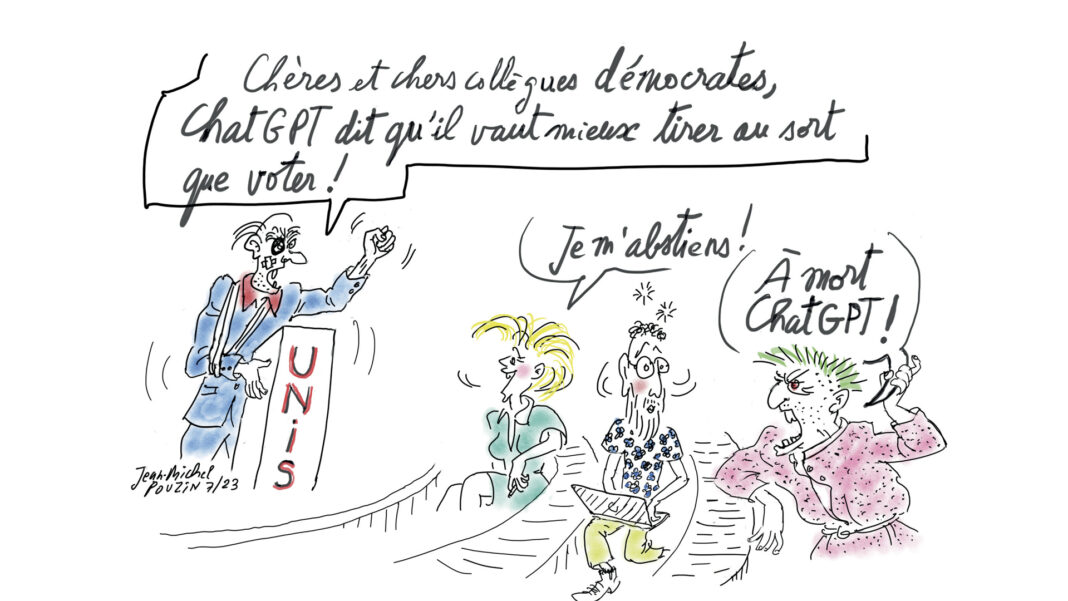 Chères et chers collègues démocrates,
ChatGPT dit qu'il vaut mieux tirer au sort
que voter !
Je m'abstiens !
À mort
ChatGPT !
UNiS
Jean-Michel
POUZIN 7/23